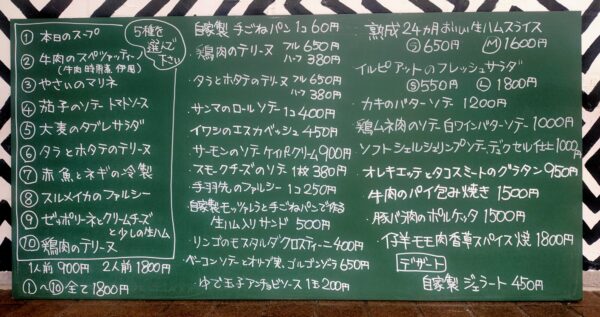 ① 本日のスープ
② 牛肉のスペツァッティーノ
(牛肉 時雨煮 伊風)
③ やさいのマリネ
④ 茄子のソテー トマトソース
⑤ 大麦のタブレサラダ
⑥ タラとホタテのテリーヌ
⑦ 赤魚とネギの冷製
⑧ スルメイカのファルシー
⑨ ゼッポリーネとクリームチーズ
と少しの生ハム
⑩ 鶏肉のテリーヌ
5種を
選んで
下さい
1人前 900円 2人前 1800円
①〜⑩全て1800円
自家製 手ごねパン 1コ 60円
鶏肉のテリーヌ フル 650円
ハーフ 380円
・タラとホタテのテリーヌ フル 650円
ハーフ 380円
・サンマのロールソテー 1コ 400円
・イワシのエスカベッシュ 450円
・サーモンのソテー ケイパークリーム 900円
・スモークチーズのソテー 1枚 380円
・手羽先のファルシー 1コ 250円
・自家製モッツァレラと手ごねパンで作る
生ハム入りサンド 500円
・リンゴのモスタルダ クロスティーニ 400円
・ベーコンソテーとオリーブ実、ゴルゴンゾーラ 650円
・ゆで玉子アンチョビソース 1コ 200円
・熟成24ヵ月おいしい生ハムスライス
Ⓢ650円 Ⓜ1600円
・イルピアットのフレッシュサラダ
Ⓢ550円 Ⓛ1800円
・カキのバターソテー 1200円
・鶏ムネ肉のソテー 白ワインバターソテー 1000円
・ソフトシェルシュリンプソテー デュクセル仕士 1000円
・オレキエッテとタコスミートのグラタン 950円
・牛肉のパイ包み焼き 1500円
・豚バラ肉のポルケッタ 1500円
・仔羊モモ肉 香草スパイス焼 1800円
デザート
自家製 ジェラート 450円